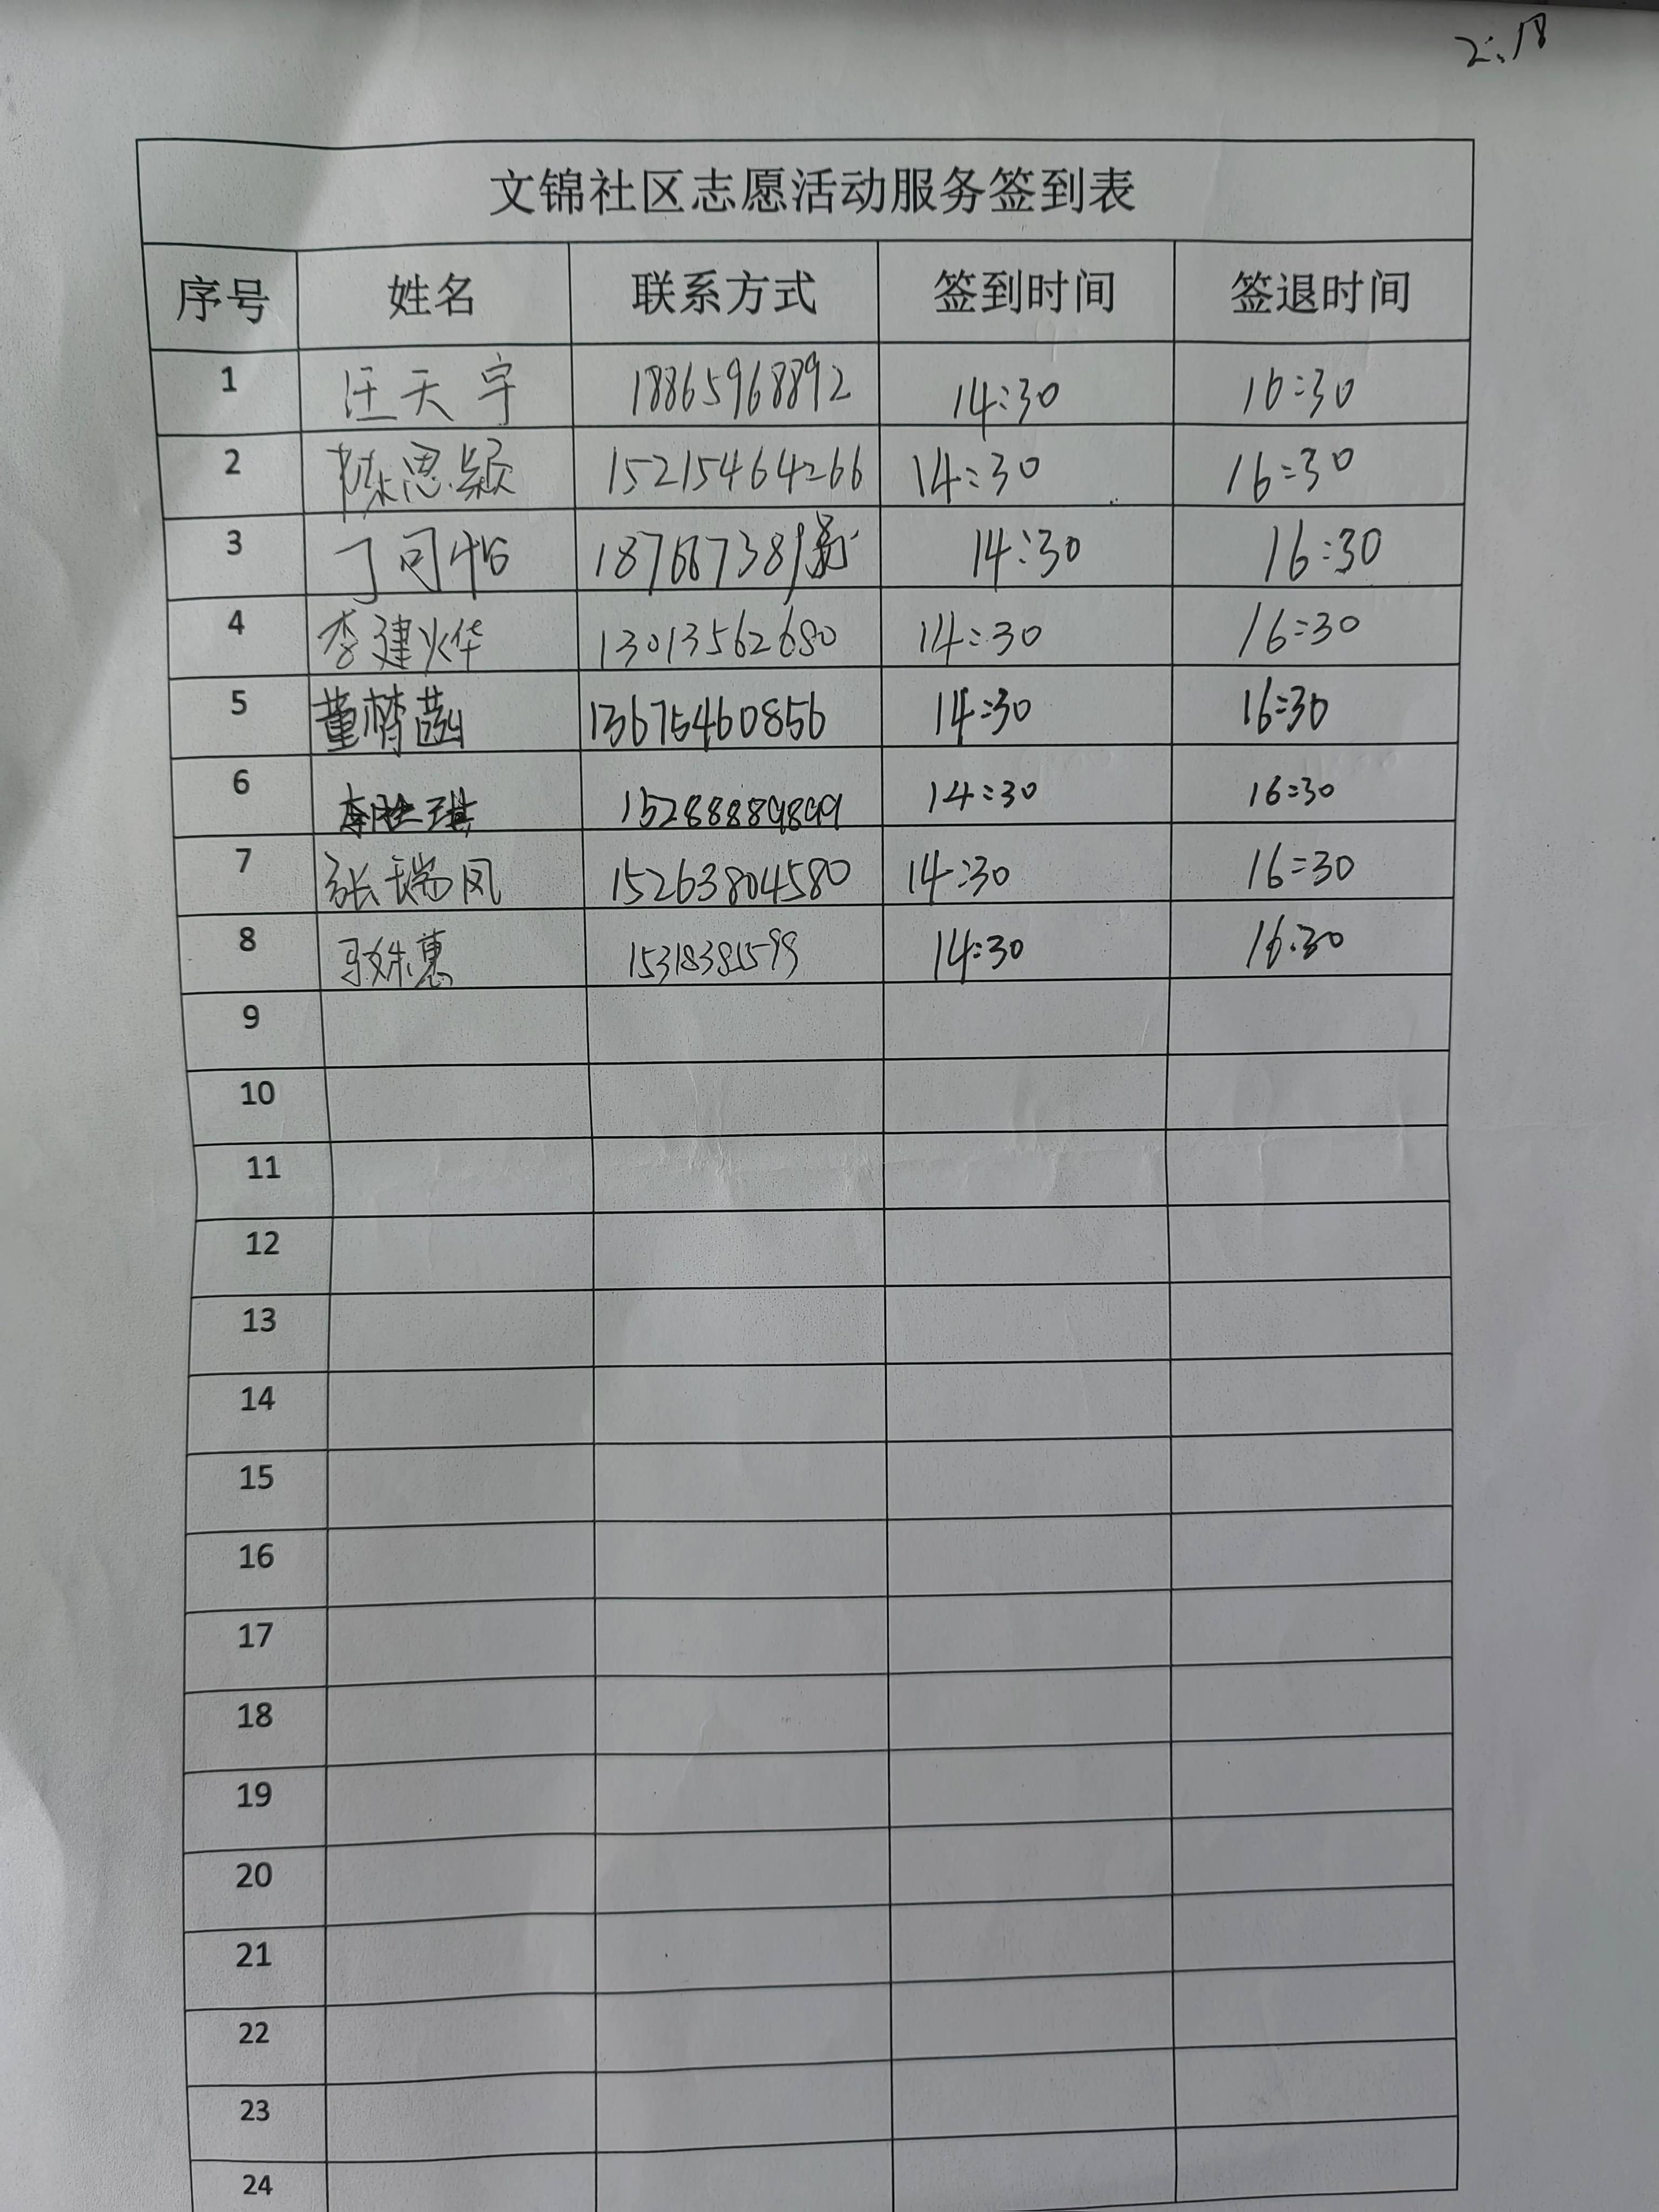 2.18
文锦社区志愿活动服务签到表
序号 姓名 联系方式 签到时间 签退时间
1 汪天宇 18865968892 14:30 16:30
2 陈思颖 15215464266 14:30 16:30
3 丁司怡 14:30 16:30
4 李建烨 13013562680 14:30 16:30
5 董楷菡 13675460856 14:30 16:30
6 15288889899 14:30 16:30
7 张瑞凤 15263804580 14:30 16:30
8 14:30 16:30
9
10
11
12
13
14
15
16
17
18
19
20
21
22
23
24